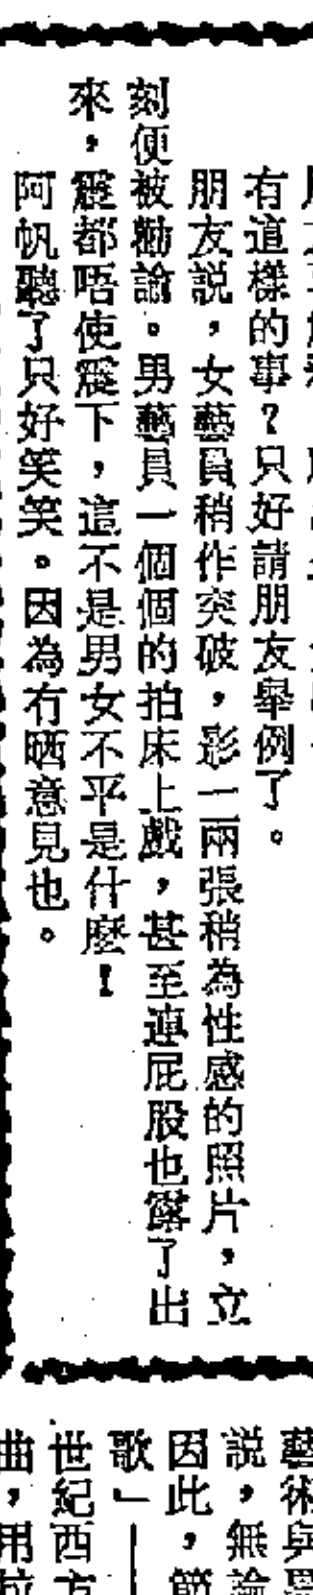 有這樣的事？只好請朋友舉例了。
朋友説，女藝員稍作突破，影一兩張稍為性感的照片，立
刻便被勸諭。男藝員一個個的拍床上戲，甚至連屁股也露了出
來，震都唔使震下，這不是男女不平是什麼！
阿帆聽了只好笑笑。因為冇晒意見也。
藝術與
説，無論
因此，節
歌」——
世紀西方
曲，用